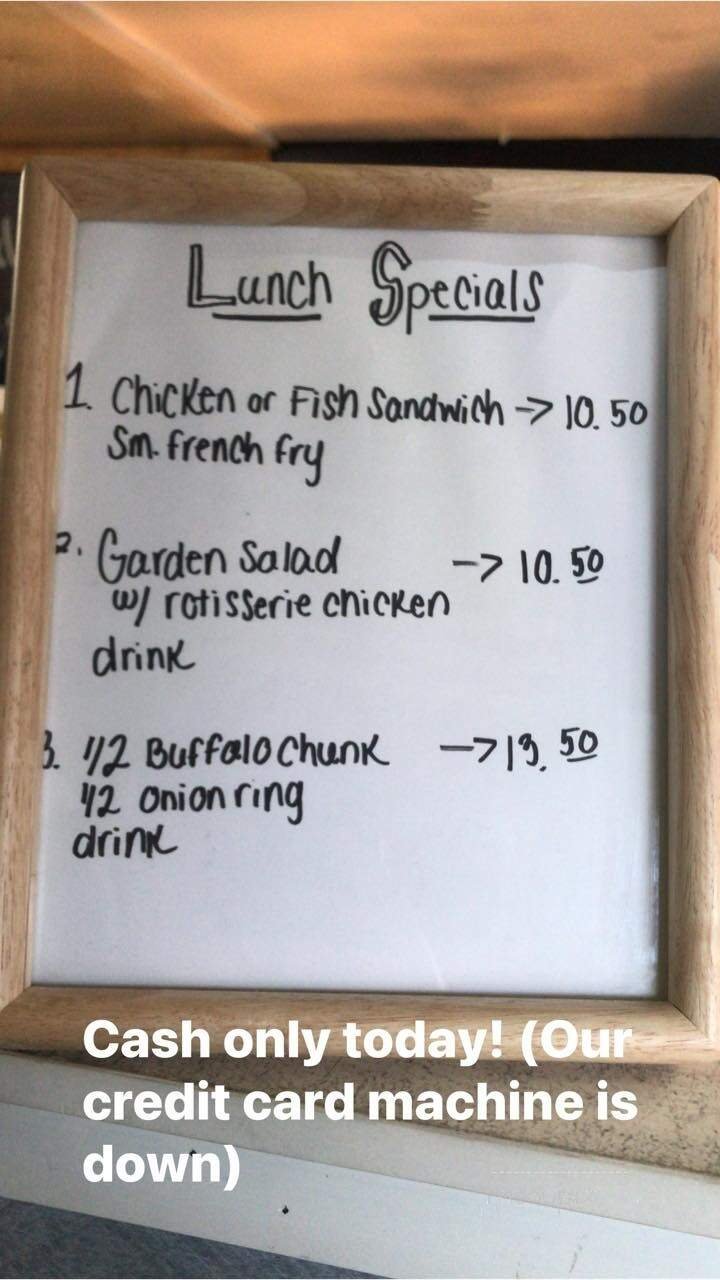 Lunch Specials
1. Chicken or Fish Sandwich -> 10.50
Sm. french fry
2. Garden Salad -> 10.50
w/ rotisserie chicken
drink
3. 1/2 Buffalo Chunk -> 13.50
1/2 onion ring
drink
Cash only today! (Our
credit card machine is
down)